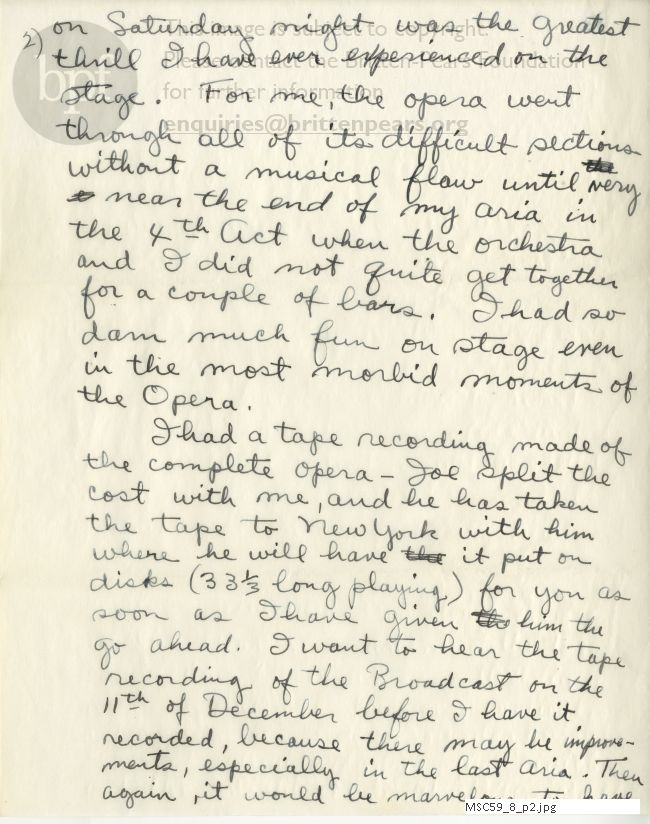 2) on Saturday night was the greatest
thrill I have ever experienced on the
stage. For me, the opera went
through all of its difficult sections
without a musical flaw until the very
near the end of my aria in
the 4th Act when the orchestra
and I did not quite get together
for a couple of bars. I had so
darn much fun on stage even
in the most morbid moments of
the Opera.
I had a tape recording made of
the complete opera - Joe split the
cost with me, and he has taken
the tape to New York with him
where he will have the it put on
disks (33 1/3 long playing) for you as
soon as I have given the him the
go ahead. I want to hear the tape
recording of the Broadcast on the
11th of December before I have it
recorded, because there may be improve-
ments, especially in the last aria. Then
again, it would be marvelous to have
This image is subject to copyright.
Please contact the Britten-Pears Foundation
for further information
enquiries@brittenpears.org
bpf
MSC59_8_p2.jpg